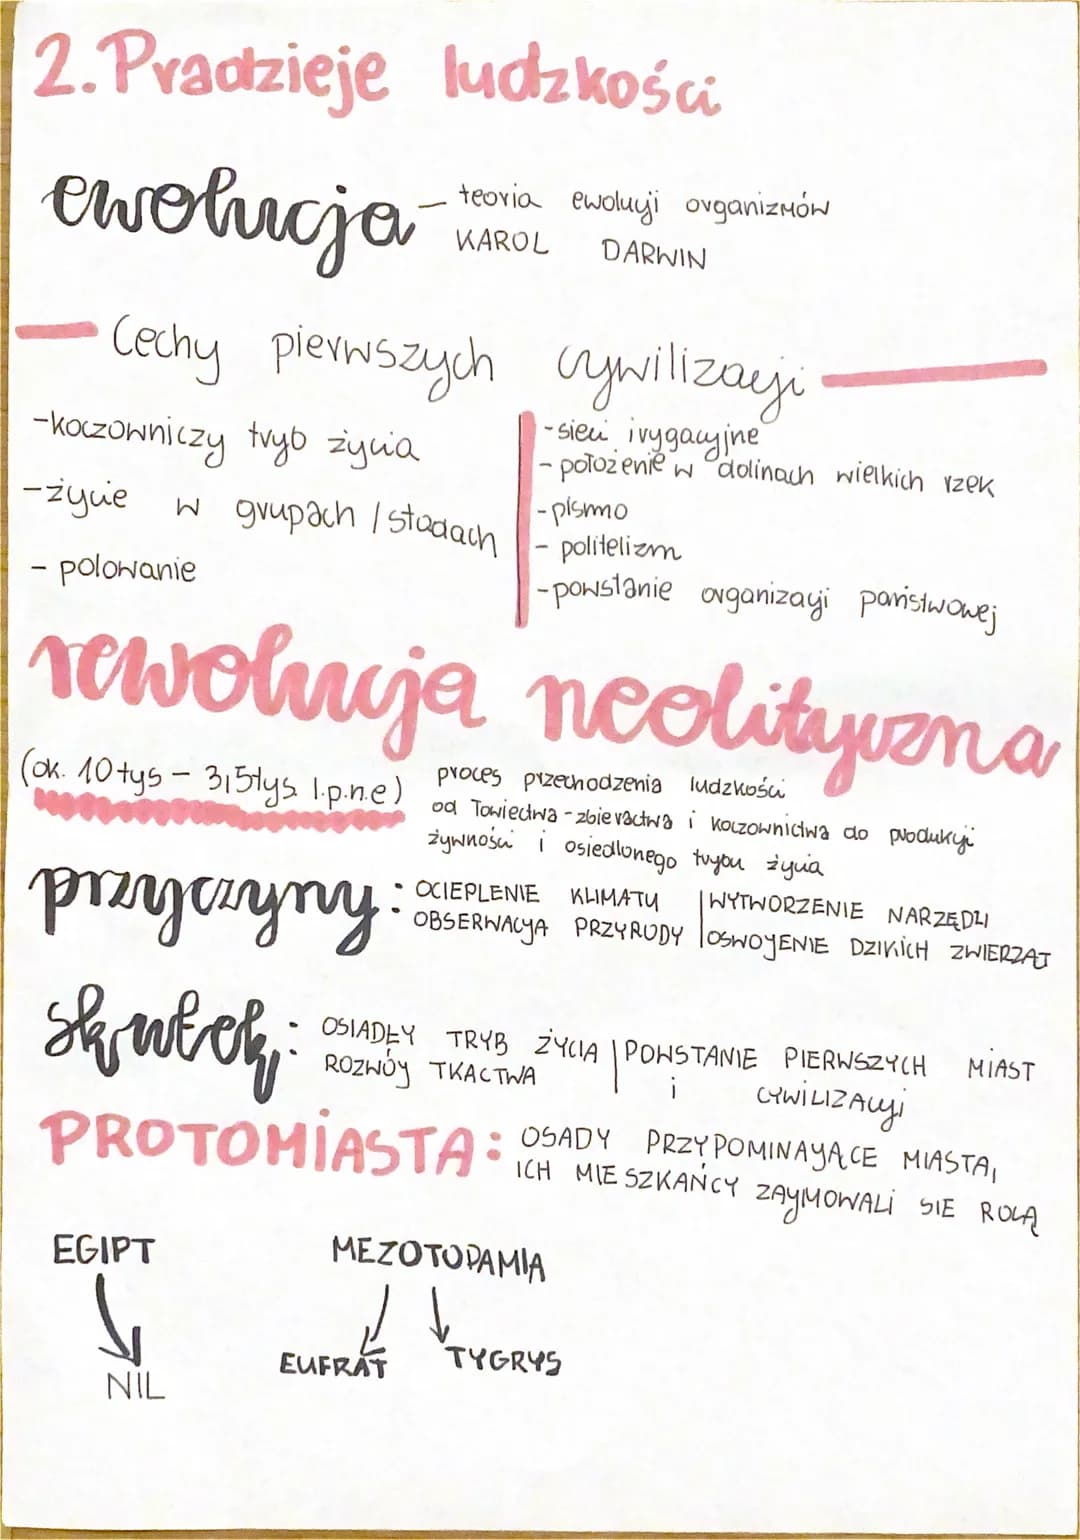 2. Pradzieje ludzkości
ewolucja - teoria ewolucji organizmów
KAROL DARWIN
Cechy pierwszych cywilizacji
-koczowniczy tryb życia
-życie w grupach / stadach
- polowanie
- sieci irygacyjne
- położenie w dolinach wielkich rzek
- pismo
- politeizm
- powstanie organizacji państwowej
rewolucja neolityczna
(ok. 10tys - 3,5tys l.p.n.e)
proces przechodzenia ludzkości
od łowiectwa - zbieractwa i koczownictwa do produkcji
żywności i osiedlonego trybu życia
przyczyny: OCIEPLENIE KLIMATU | WYTWORZENIE NARZĘDZI
OBSERWACJA PRZYRODY | OSWOJENIE DZIKICH ZWIERZĄT
skutek: OSIADŁY TRYB ŻYCIA | POWSTANIE PIERWSZYCH MIAST
ROZWÓJ TKACTWA | i CYWILIZACJI
PROTOMIASTA: OSADY PRZYPOMINAJĄCE MIASTA,
ICH MIESZKAŃCY ZAJMOWALI SIE ROLĄ
EGIPT MEZOTOPAMIA
EUFRAT TYGRYS
NIL